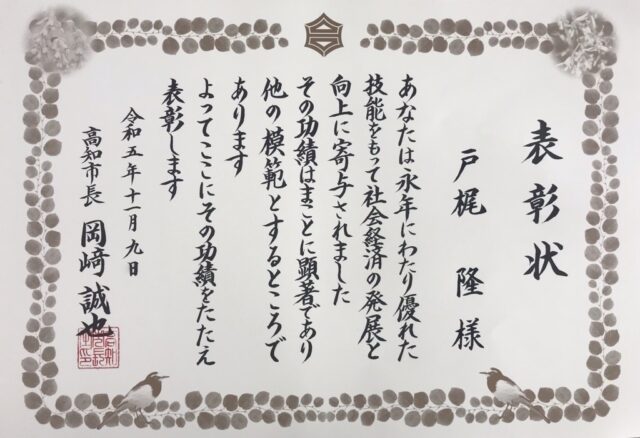 表彰状
戸梶 隆 様
あなたは永年にわたり優れた
技能をもって社会経済の発展と
向上に寄与されました
その功績はまことに顕著であり
他の模範とするところで
あります
よってここにその功績をたたえ
表彰します
令和五年十一月九日
高知市長 岡﨑 誠也